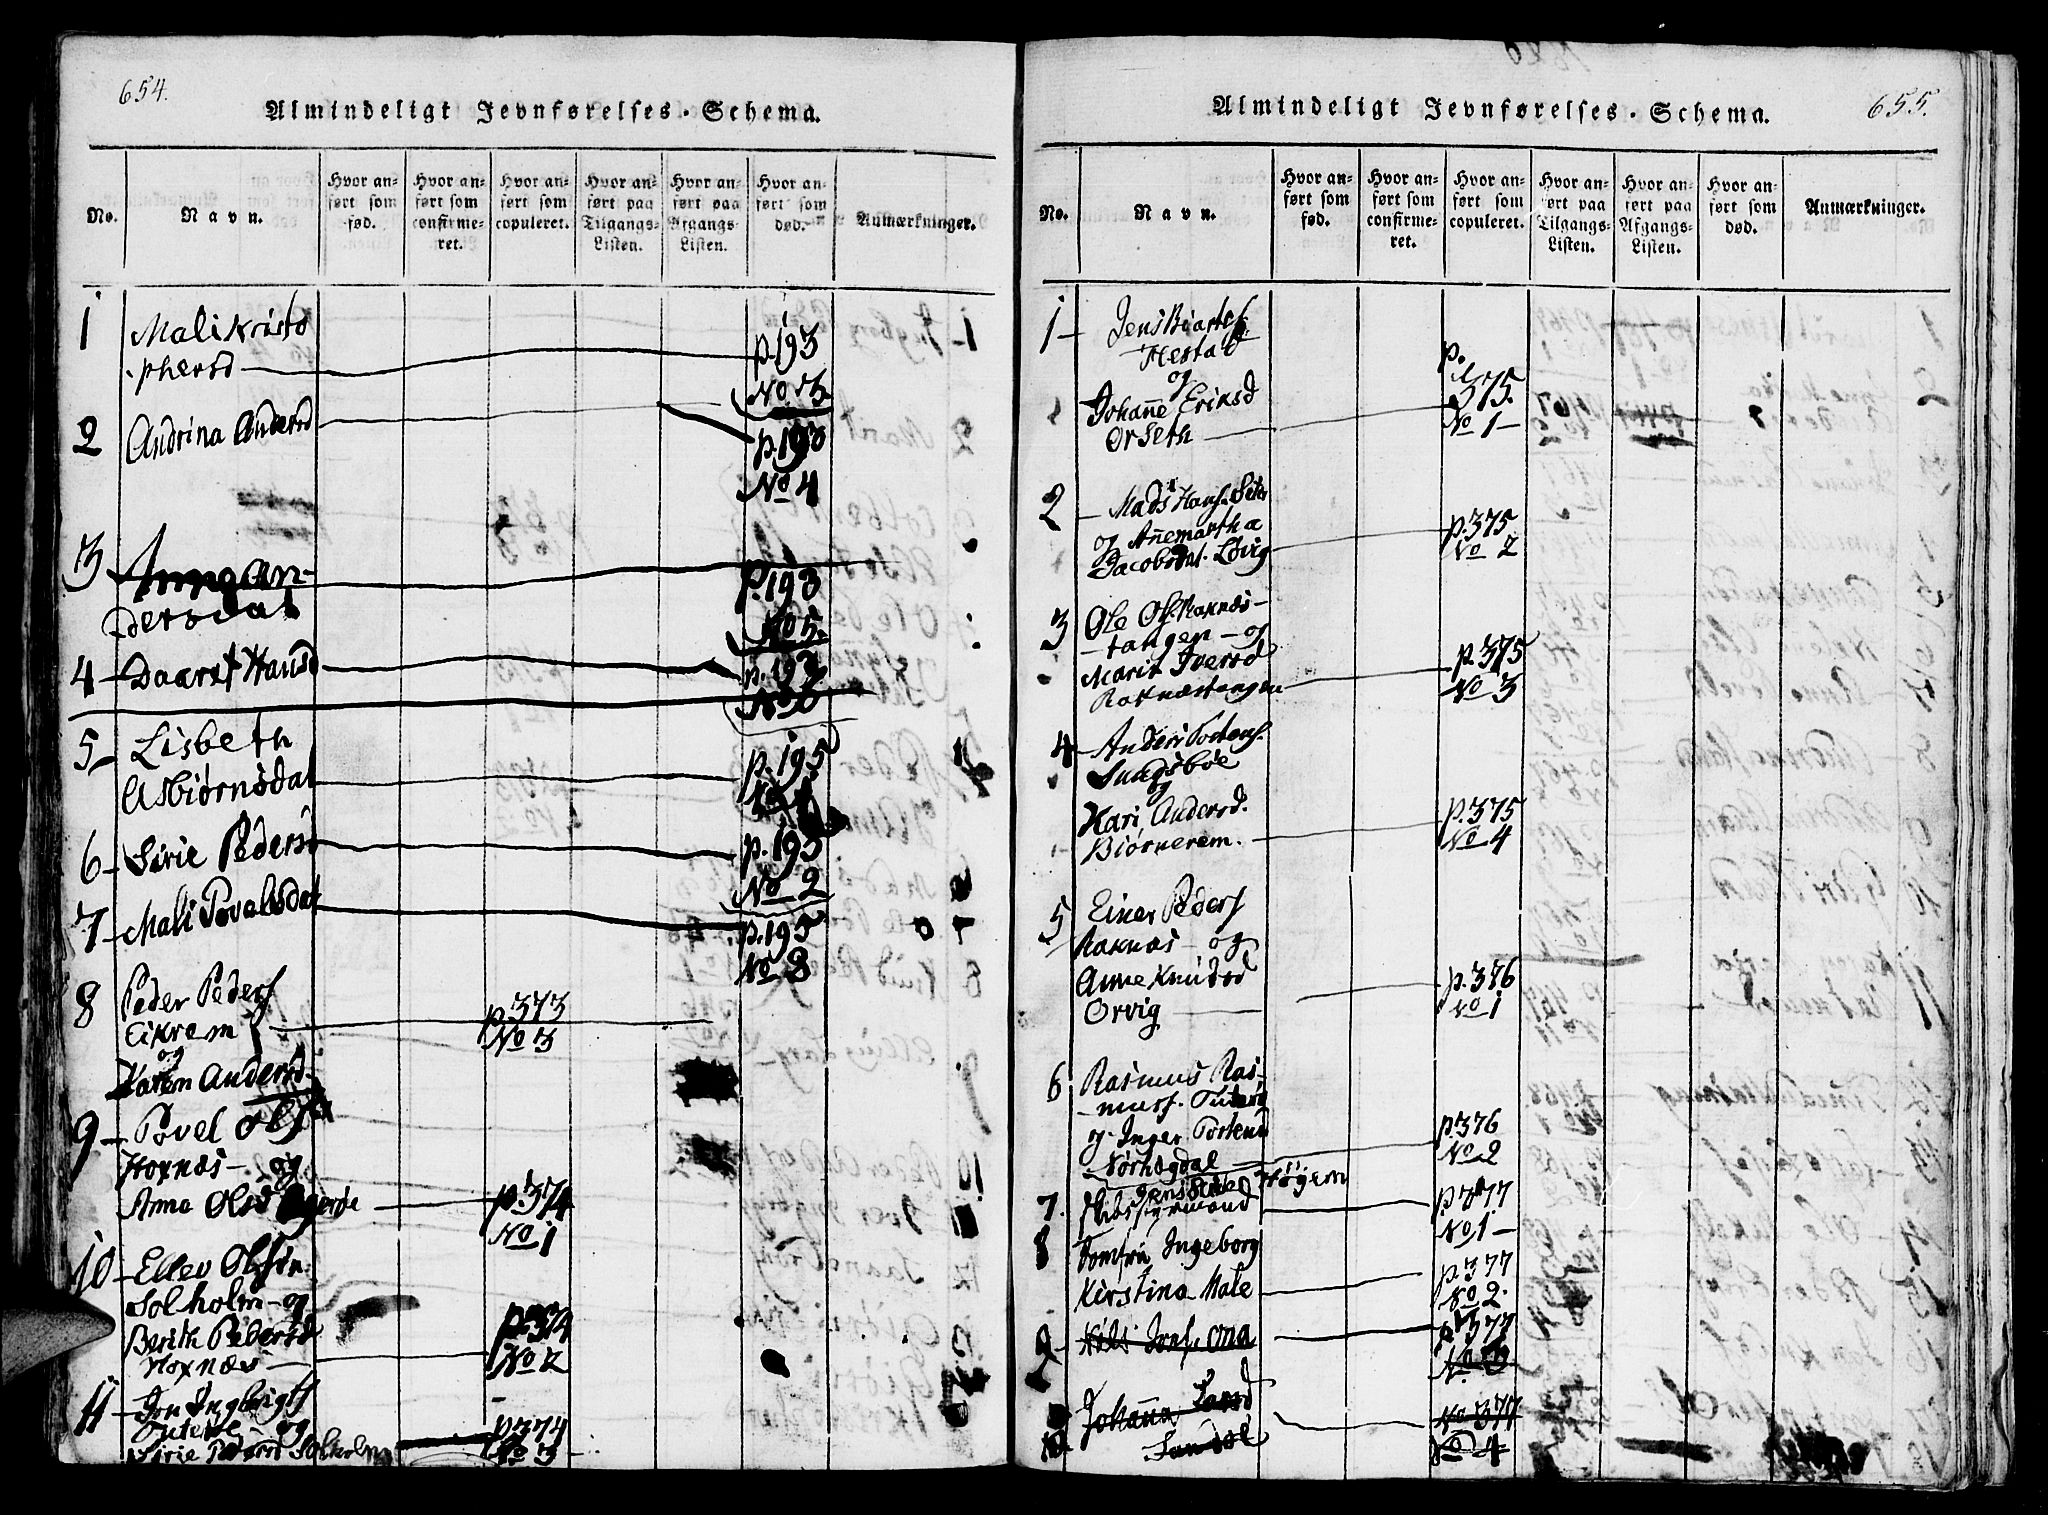 654.
Almindeligt Jevnførelses-Schema.
No.
Navn.
Hvor an-
ført som
fød.
Hvor an-
ført som
confirme-
ret.
Hvor an-
ført som
copuleret.
Hvor an-
ført paa
Tilgangs-
Listen.
Hvor an-
ført paa
Afgangs-
Listen.
Hvor an-
ført som
død.
Anmærkninger.
1 Mali Kristo
phersd p. 193
No 3
2 Andrina Andersd p. 193
No 4
3 Anna An-
dersdat p. 193
No 5.
4 Daaret Hansd p. 193
No 6
5 Lisbeth
Asbiørnsdat p. 195
No 1
6 Sirie Pedersd p. 195
No 2
7 Mali Povelsdat p. 195
No 3
8 Peder Peders p. 373
Eikrem No 3
og
Karen Andersd
9 Povel Ols
Hoxnæs og
Anna Olsd p. 374
No 1
10 Ellev Olsen
Solholm og
Berith Pedersd p. 374
Hoxnæs No 2
11 Jon Ingbrigts
og p. 374
Sirie Pedersd Solholm No 3
655.
Almindeligt Jevnførelses-Schema.
No.
Navn.
Hvor an-
ført som
fød.
Hvor an-
ført som
confirme-
ret.
Hvor an-
ført som
copuleret.
Hvor an-
ført paa
Tilgangs-
Listen.
Hvor an-
ført paa
Afgangs-
Listen.
Hvor an-
ført som
død.
Anmærkninger.
1 Jens
Hestad p.
og
Johanne Eriksd 375.
Orseth No 1
2 Mads Hans. Seter
og Annemartha p. 375
Jacobsdat. Løvig No 2
3 Ole Ols. Raknæs-
tangen og
Marit Iversd p. 375
Raknæstangen No 3
4 Anders Tostens.
Sungsbøe
og
Kari Andersd. p. 375
Biørnerem. No 4
5 Einer Peders
Raknæs og
Anne Knudsd p. 376
Orvig No 1
6 Rasmus Ras-
mus.
og Inger Tostensd p. 376
Nørhogdal No 2
7. p. 377
No 1
8 Jomfru Ingeborg
Kirstina Møle p. 377
No 2.
9 Niels Jons. Ona p. 377
No. 3
10 Johanna Larsd No 377
Sandøe No 4